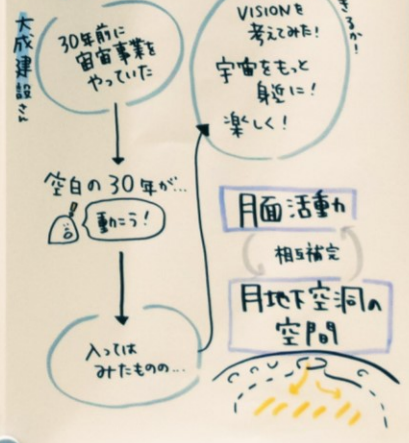 大成建設さん
30年前に
宙宙事業を
やっていた
空白の30年が…
動こう!
入っては
みたものの…
きるか!
VISIONを
考えてみた!
宇宙をもっと
身近に!
楽しく!
月面活動
相互補完
月地下空洞の
空間